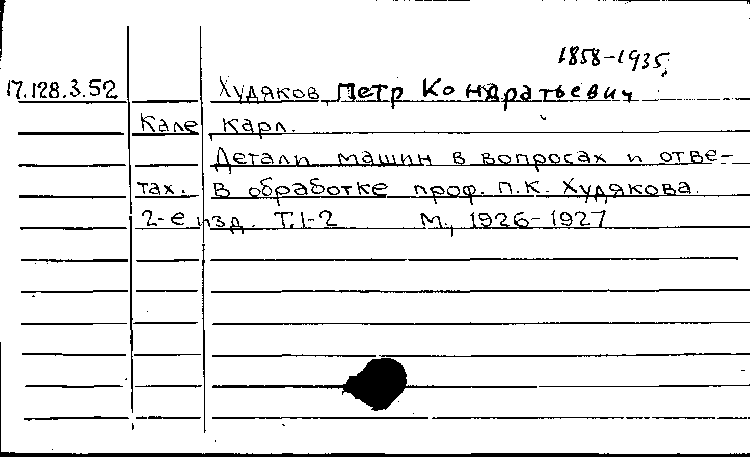 1858-1935.
17.128.3.52 Худяков, Петр Кондратьевич
Кале, Карл.
Детали машин в вопросах и отве-
тах. В обработке проф. П.К. Худякова.
2-е изд. Т.1-2 М., 1926-1927